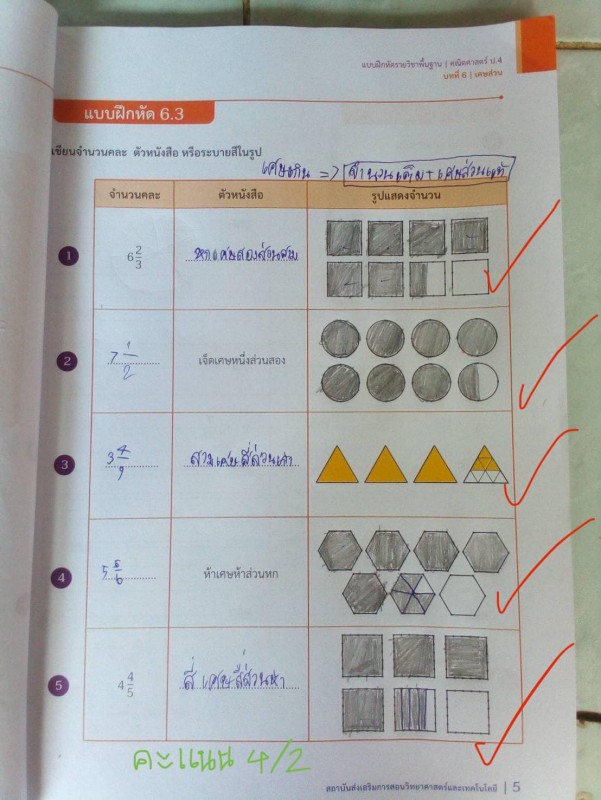 แบบฝึกหัดรายวิชาพื้นฐาน | คณิตศาสตร์ ป.4
บทที่ 6 | เศษส่วน
แบบฝึกหัด 6.3
เขียนจำนวนคละ ตัวหนังสือ หรือระบายสีในรูป
เศษเกิน => จำนวนเต็ม+เศษส่วนแท้
จำนวนคละ ตัวหนังสือ รูปแสดงจำนวน
1 6 2/3 หกเศษสองส่วนสาม
2 7 1/2 เจ็ดเศษหนึ่งส่วนสอง
3 3 4/9 สามเศษสี่ส่วนเก้า
4 5 5/6 ห้าเศษห้าส่วนหก
5 4 4/5 สี่เศษสี่ส่วนห้า
คะแนน 4/2
สถาบันส่งเสริมการสอนวิทยาศาสตร์และเทคโนโลยี | 5